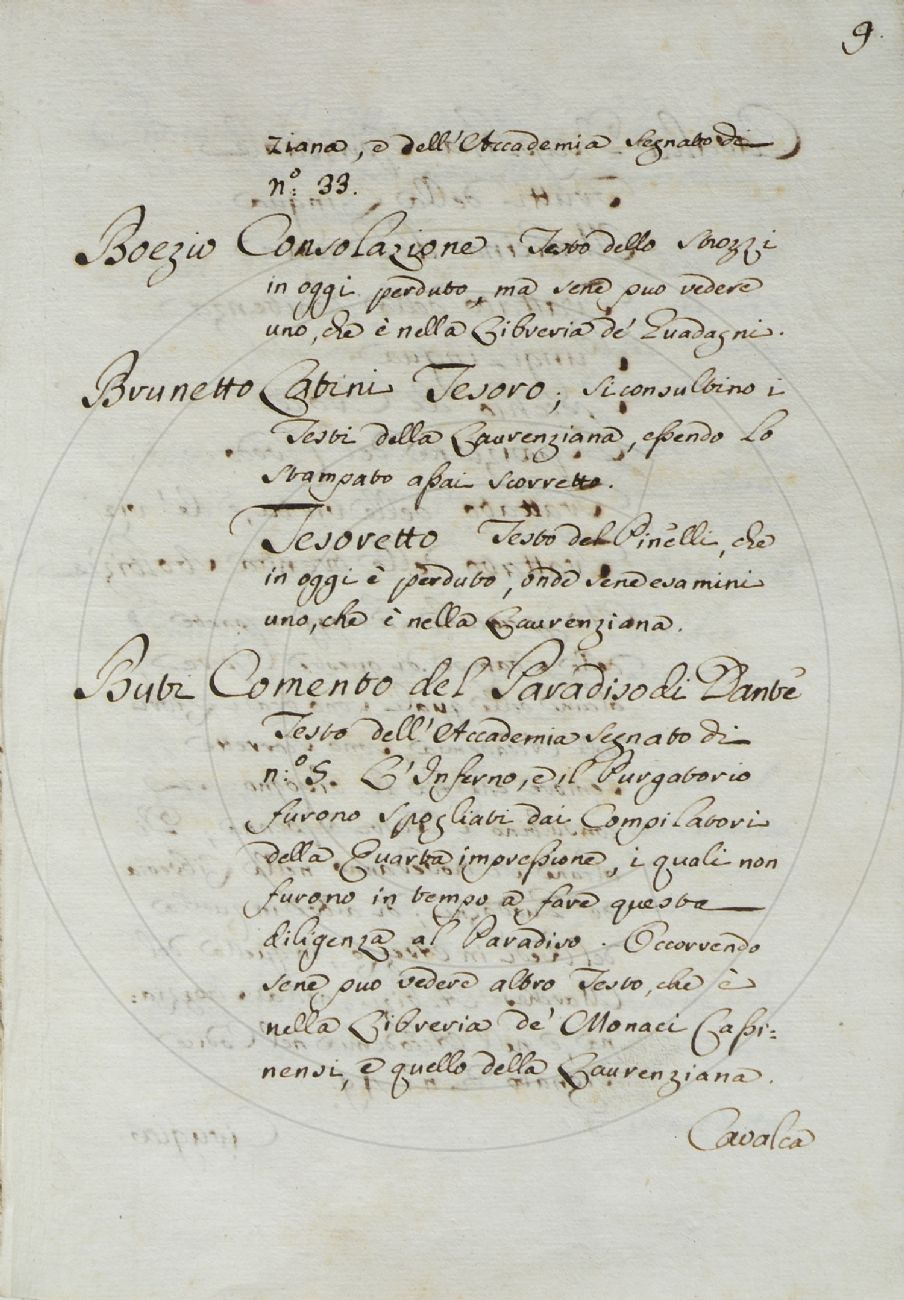 9.
ziana, e dell'Accademia segnato di
n.º 33.
Boezio Consolazione Testo dello Strozzi
in oggi perduto, ma sene puo vedere
uno, che è nella Libreria de' Guadagni.
Brunetto Latini Tesoro; si consultino i
Testi della Laurenziana, eßendo lo
stampato aßai scorretto.
Tesoretto Testo del Pinelli, che
in oggi è perduto, onde sene esamini
uno, che è nella Laurenziana.
Buti Comento del Paradiso di Dante
Testo dell'Accademia segnato di
n.º 5. L'Inferno, e il Purgatorio
furono spogliati dai Compilatori
della Quarta impreßione, i quali non
furono in tempo a fare questa
diligenza al Paradiso. Occorrendo
sene puo vedere altro Testo, che è
nella Libreria de' Monaci Caßi=
nensi, e quello della Laurenziana.
Cavalca